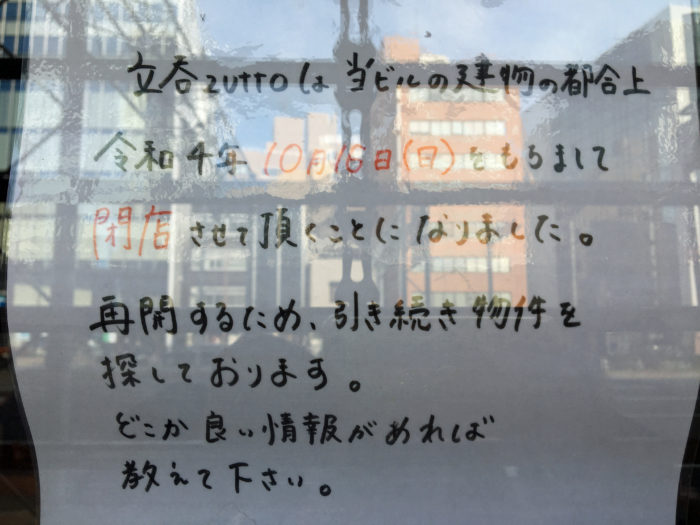 立呑zuttoは当ビルの建物の都合上
令和4年10月16日(日)をもちまして
閉店させて頂くことになりました。
再開するため、引き続き物件を
探しております。
どこか良い情報があれば
教えて下さい。